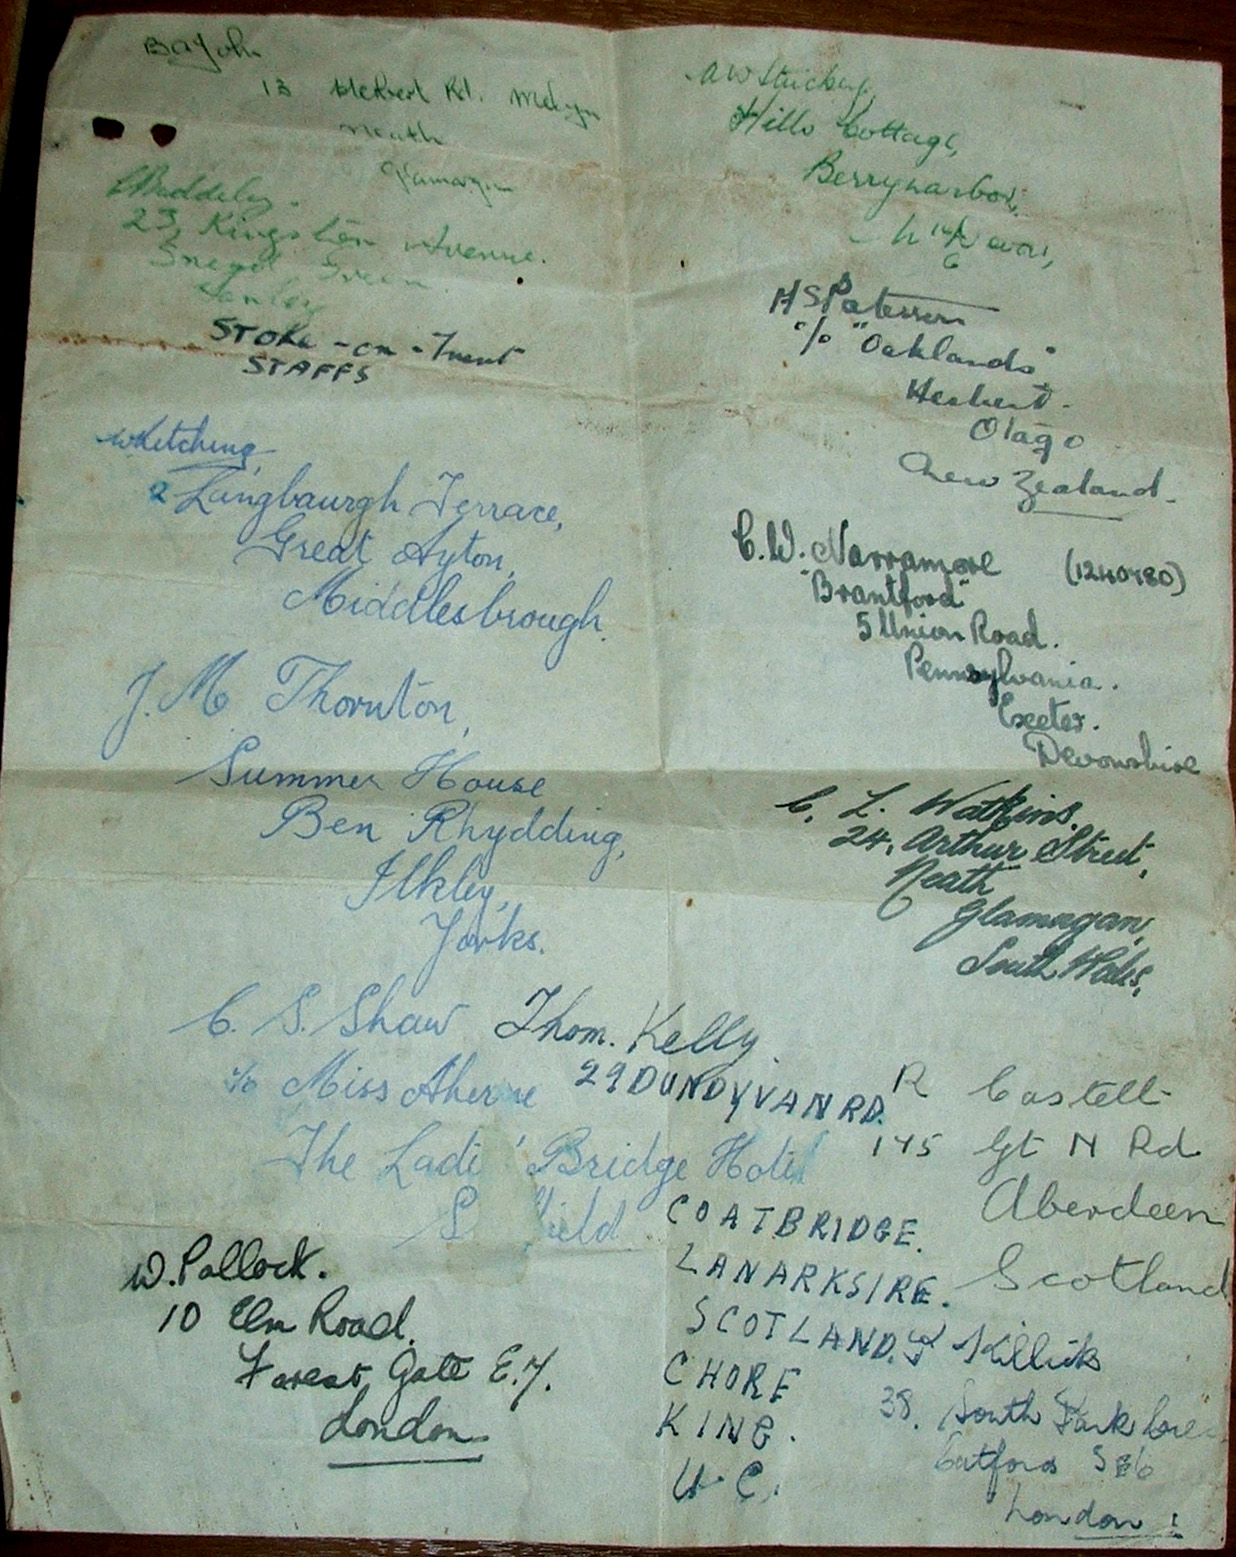 B A John
13 Herbert Rd. Melyn
Neath
Glamorgan
Baddeley.
23, Kingston Avenue.
Sneyd Green
Hanley
STOKE-on-Trent
STAFFS
W Kitching,
2 Langbaurgh Terrace,
Great Ayton,
Middlesbrough.
J. M Thornton,
Summer House
Ben Rhydding,
Ilkley,
Yorks.
C. S. Shaw
c/o Miss Aherne
The Ladi ' Bridge Hotel
S field
W. Pollock.
10 Elm Road.
Forest Gate E.7.
London
A W
Hills Cottage,
Berrynarbor,
Nth Devon,
H S Paterson
c/o "Oaklands"
Herbert.
Otago
New Zealand.
C. W. Narramore (1240980)
"Brantford"
5 Union Road.
Pennsylvania.
Exeter.
Devonshire
C. L. Watkins.
24, Arthur Street,
Neath
Glamorgan,
South Wales,
Thom. Kelly.
29 DUNDYVAN RD.
COATBRIDGE.
LANARKSIRE.
SCOTLAND.
CHORE
KING.
U C.
R Castell
145 Gt N Rd
Aberdeen
Scotland
Killick
38. South Park Cres
Catford SE6
London !